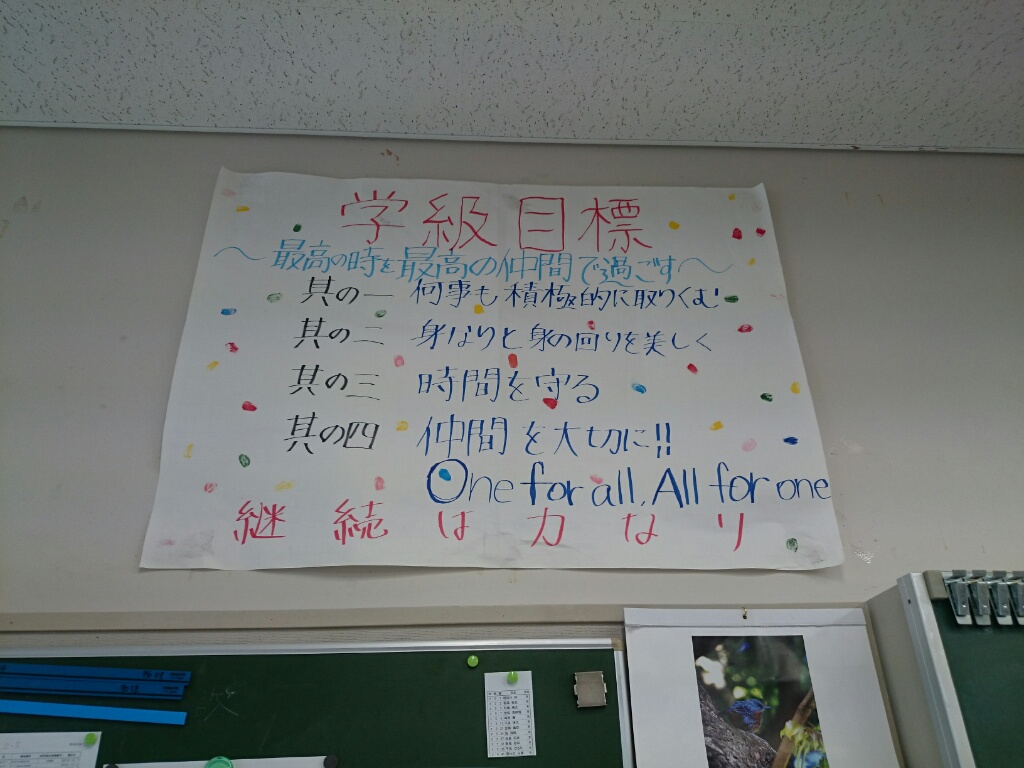 学級目標
～最高の時を最高の仲間で過ごす～
其の一 何事も積極的に取りくむ!
其の二 身なりと身の回りを美しく
其の三 時間を守る
其の四 仲間を大切に!!
One for all, All for one
継続は力なり